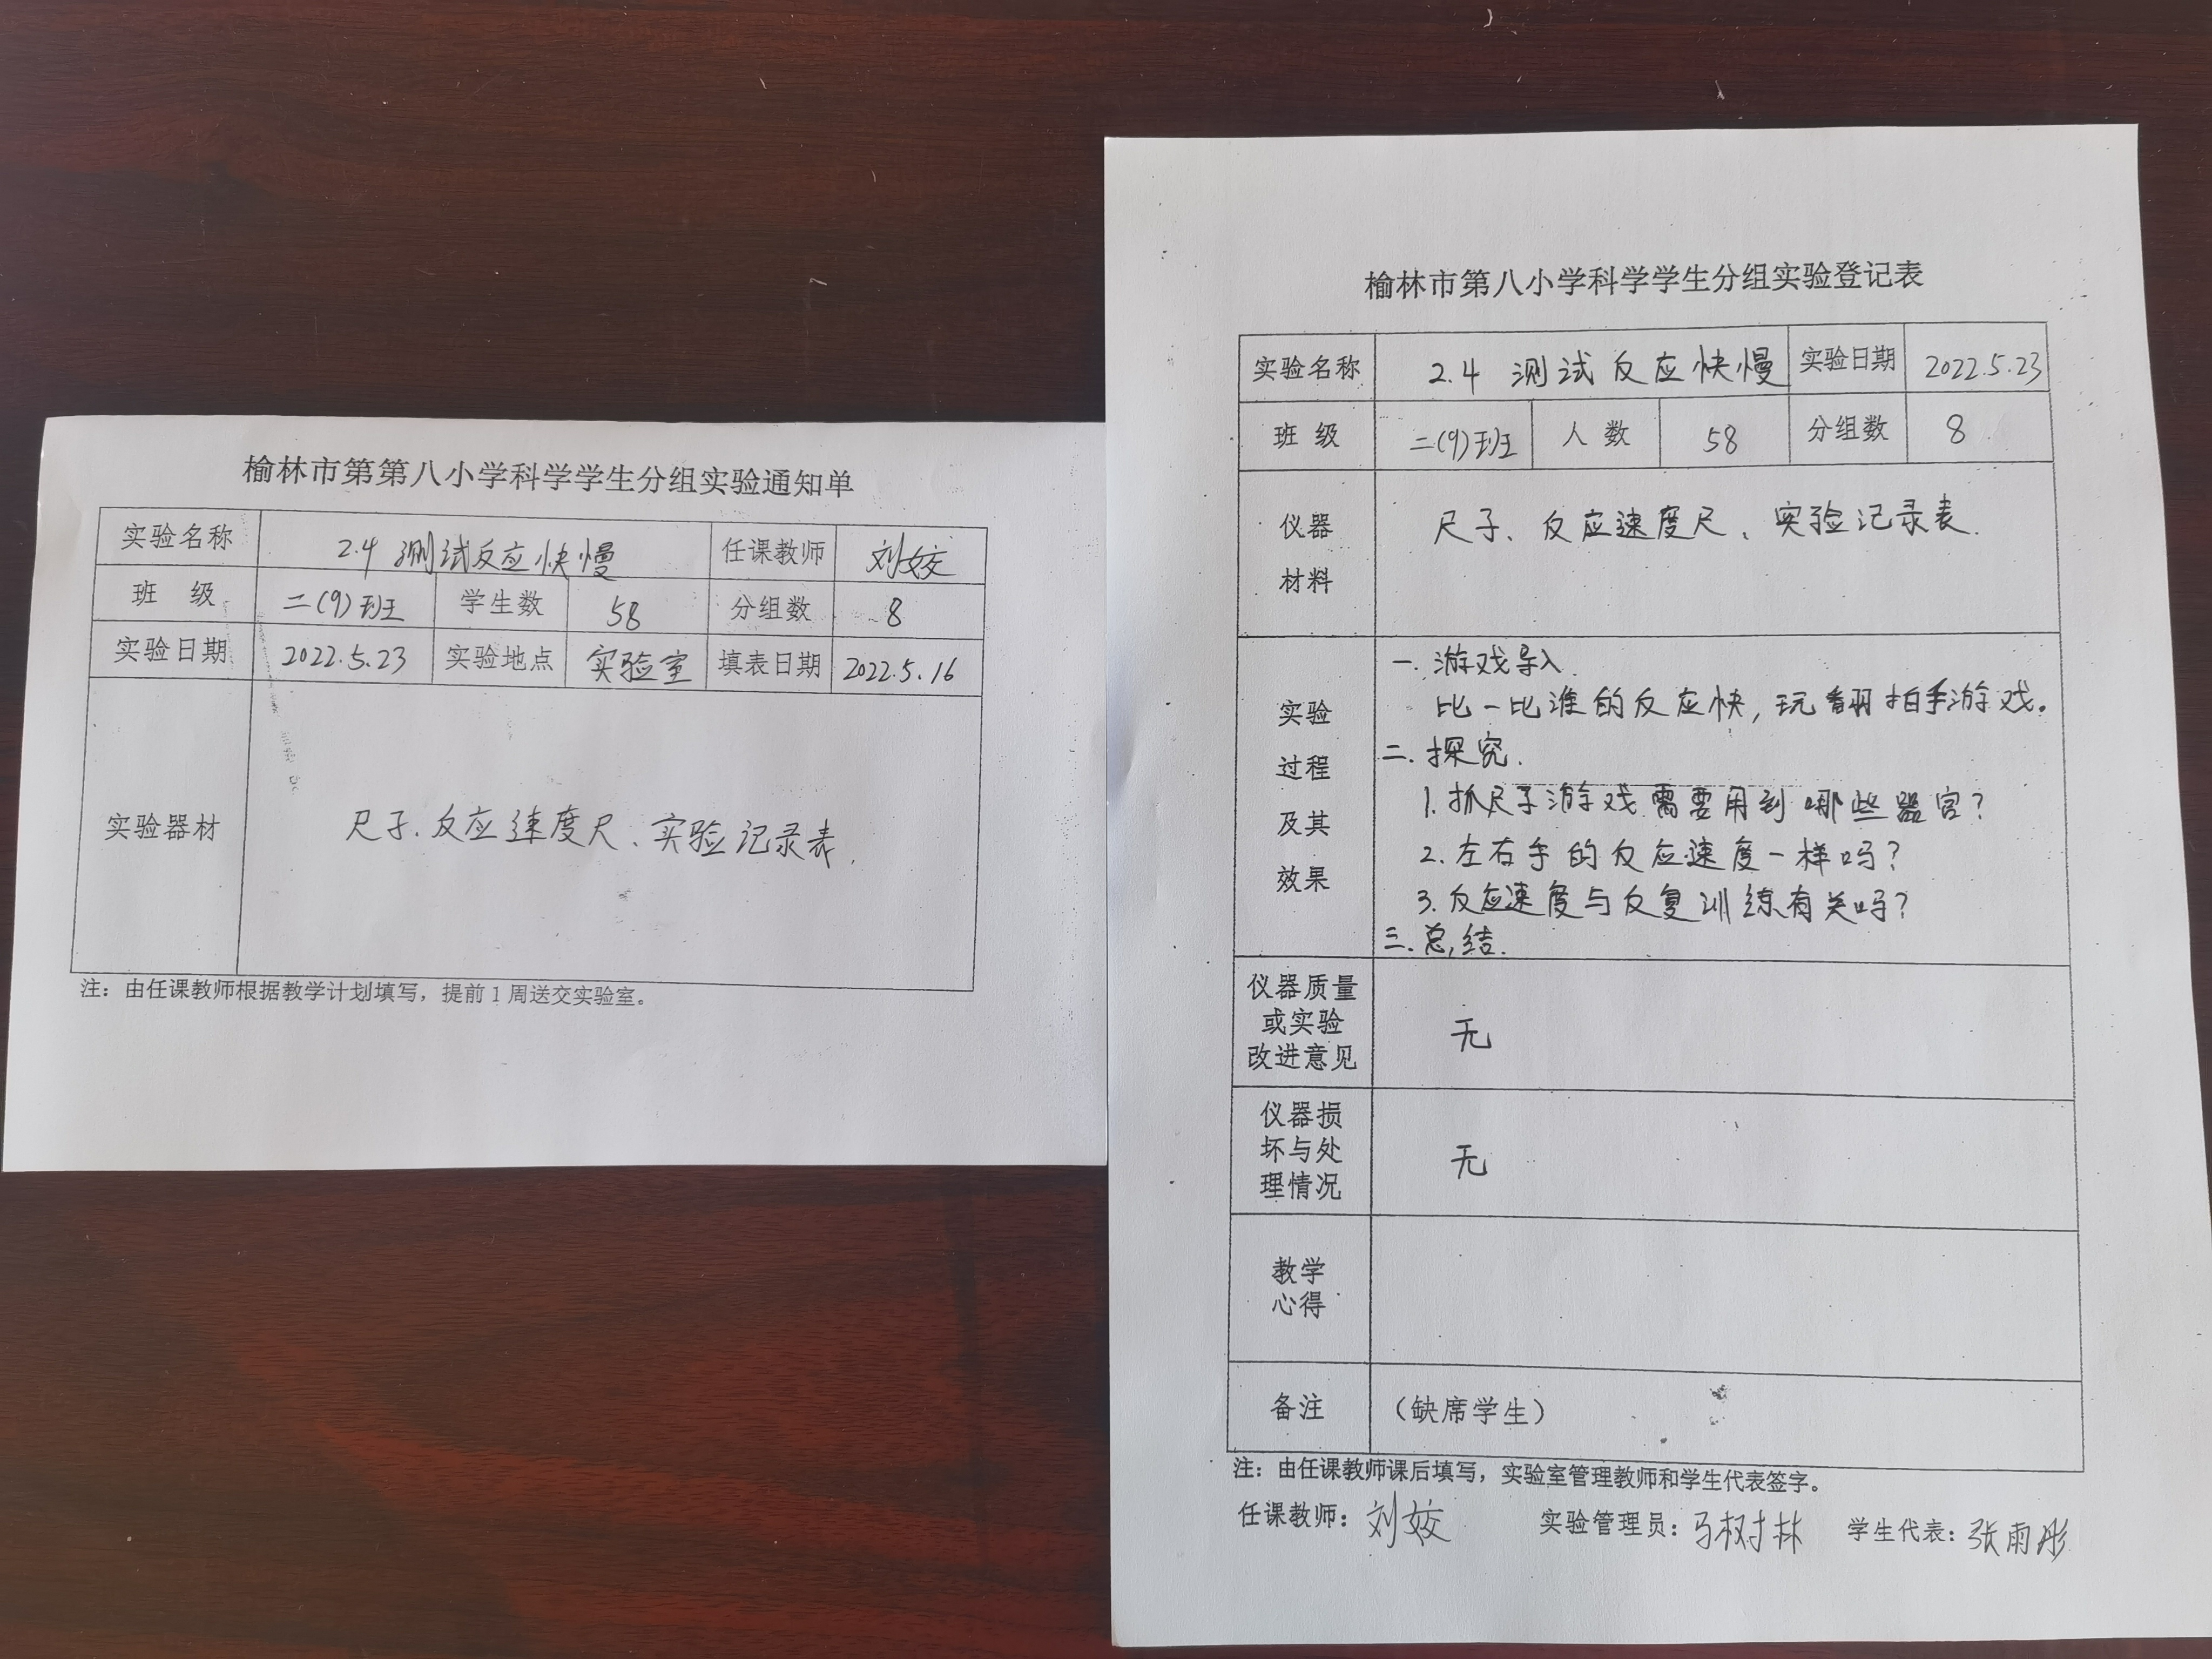 榆林市第第八小学科学学生分组实验通知单
实验名称 2.4 测试反应快慢 任课教师 刘姣
班 级 二(9)班 学生数 58 分组数 8
实验日期 2022.5.23 实验地点 实验室 填表日期 2022.5.16
实验器材 尺子、反应速度尺、实验记录表.
注：由任课教师根据教学计划填写，提前1周送交实验室。
榆林市第八小学科学学生分组实验登记表
实验名称 2.4 测试反应快慢 实验日期 2022.5.23
班 级 二(9)班 人 数 58 分组数 8
仪器
材料
尺子、反应速度尺、实验记录表.
实验
过程
及其
效果
一. 游戏导入.
比一比谁的反应快，玩翻拍手游戏。
二. 探究.
1. 抓尺子游戏需要用到哪些器官？
2. 左右手的反应速度一样吗？
3. 反应速度与反复训练有关吗？
三. 总结.
仪器质量
或实验
改进意见
无
仪器损
坏与处
理情况
无
教学
心得
备注 （缺席学生）
注：由任课教师课后填写，实验室管理教师和学生代表签字。
任课教师：刘姣 实验管理员：马树林 学生代表：张雨彤